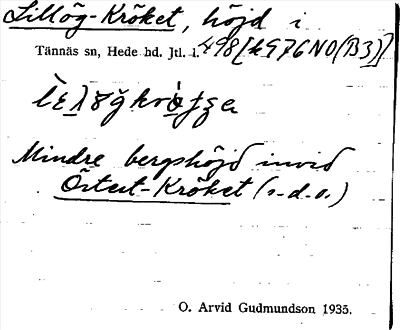 Lillög-Kröket, höjd i
Tännäs sn, Hede hd. Jtl. l. 498 [k976NO(B3)]
Mindre bergshöjd invid
Kröket (s.d.o.)
O. Arvid Gudmundson 1935.